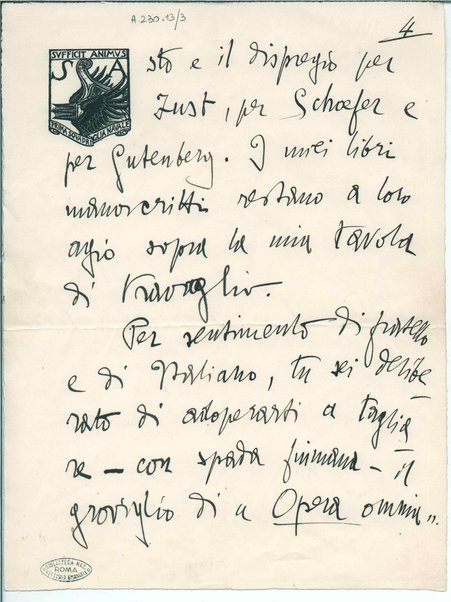 A.230.13/3
4
SVFFICIT ANIMVS
S A
sto e il dispregio per
Fust, per Schoefer e
per Gutenberg. I miei libri
manoscritti restano a loro
agio sopra la mia tavola
di travaglio.
Per sentimento di fratello
e di Italiano, tu sei delibe
rato di adoperarti a taglia
re – con spada fiumana – il
groviglio di "Opera omnia".
BIBLIOTECA NAZ.
ROMA
VITTORIO EMANUELE